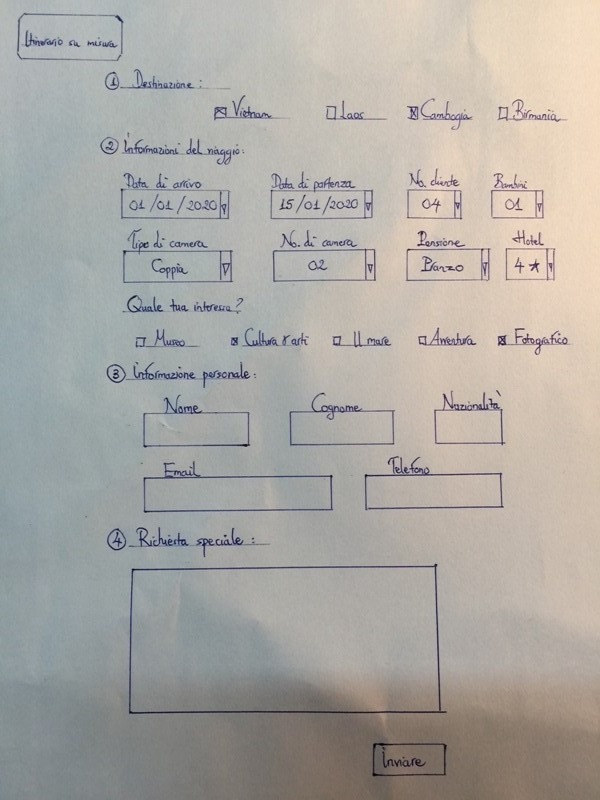 Itinerario su misura
① Destinazione :
Vietnam Laos Cambogia Birmania
② Informazioni del viaggio:
Data di arrivo Data di partenza No. cliente Bambini
01/01/2020 15/01/2020 04 01
Tipo di camera No. di camera Pensione Hotel
Coppia 02 Pranzo 4 ★
Quale tua interessa?
Museo Cultura & arti Il mare Avventura Fotografico
③ Informazione personale:
Nome Cognome Nazionalità
Email Telefono
④ Richiesta speciale :
Inviare